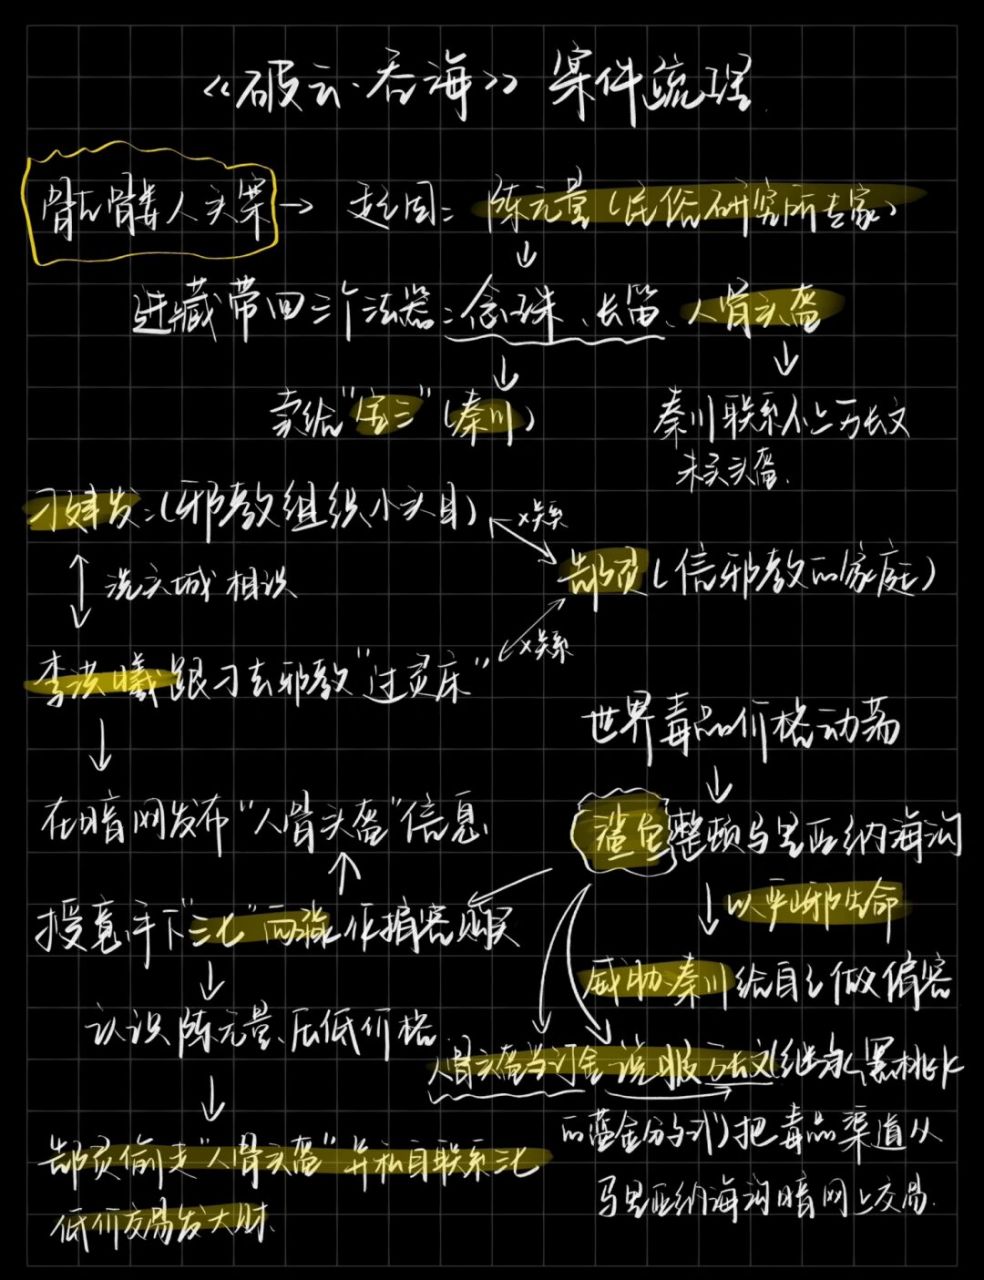 《破云·吞海》案件疏理
骷髅人头案→ 起因：陈元量（民俗研究所专家）
进藏带回三个法器：念珠、长笛、人骨头盔
卖给"宝三"（秦川）
秦川联系不上万长文
未买头盔
刁建发：（邪教组织小头目）
x关系
洗头城相识
郜灵（信邪教的家庭）
x关系
李洪曦跟刁去邪教"过灵床"
世界毒品价格动荡
在暗网发布"人骨头盔"信息
鲨鱼整顿马里亚纳海沟
以严峫生命
授意手下"三七"
威胁秦川给自己做掮客
认识陈元量、压低价格
人骨头盔当订金说服万长文（继承黑桃K
的蓝金分子式）把毒品渠道从
马里亚纳海沟暗网上交易.
郜灵偷走"人骨头盔"并私自联系三七
低价交易发大财.